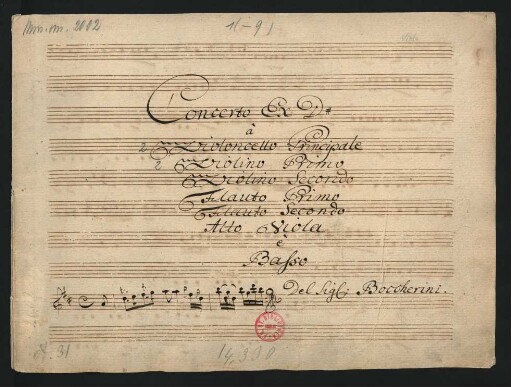 Mus. ms. 2002
11-91
Concerto Ex D#
à
2 Violoncello Principale
2 Violino Primo
Violino Secondo
Flauto Primo
Flauto Secondo
Alto Viola
è
Basso
Del Sigl: Boccherini
N. 31
14,390